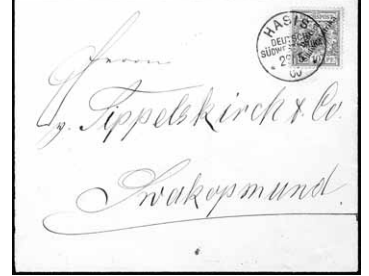 HASIS
DEUTSCH-
SÜDWEST
29
Herrn
v. Tippelskirch & Co.
Swakopmund.